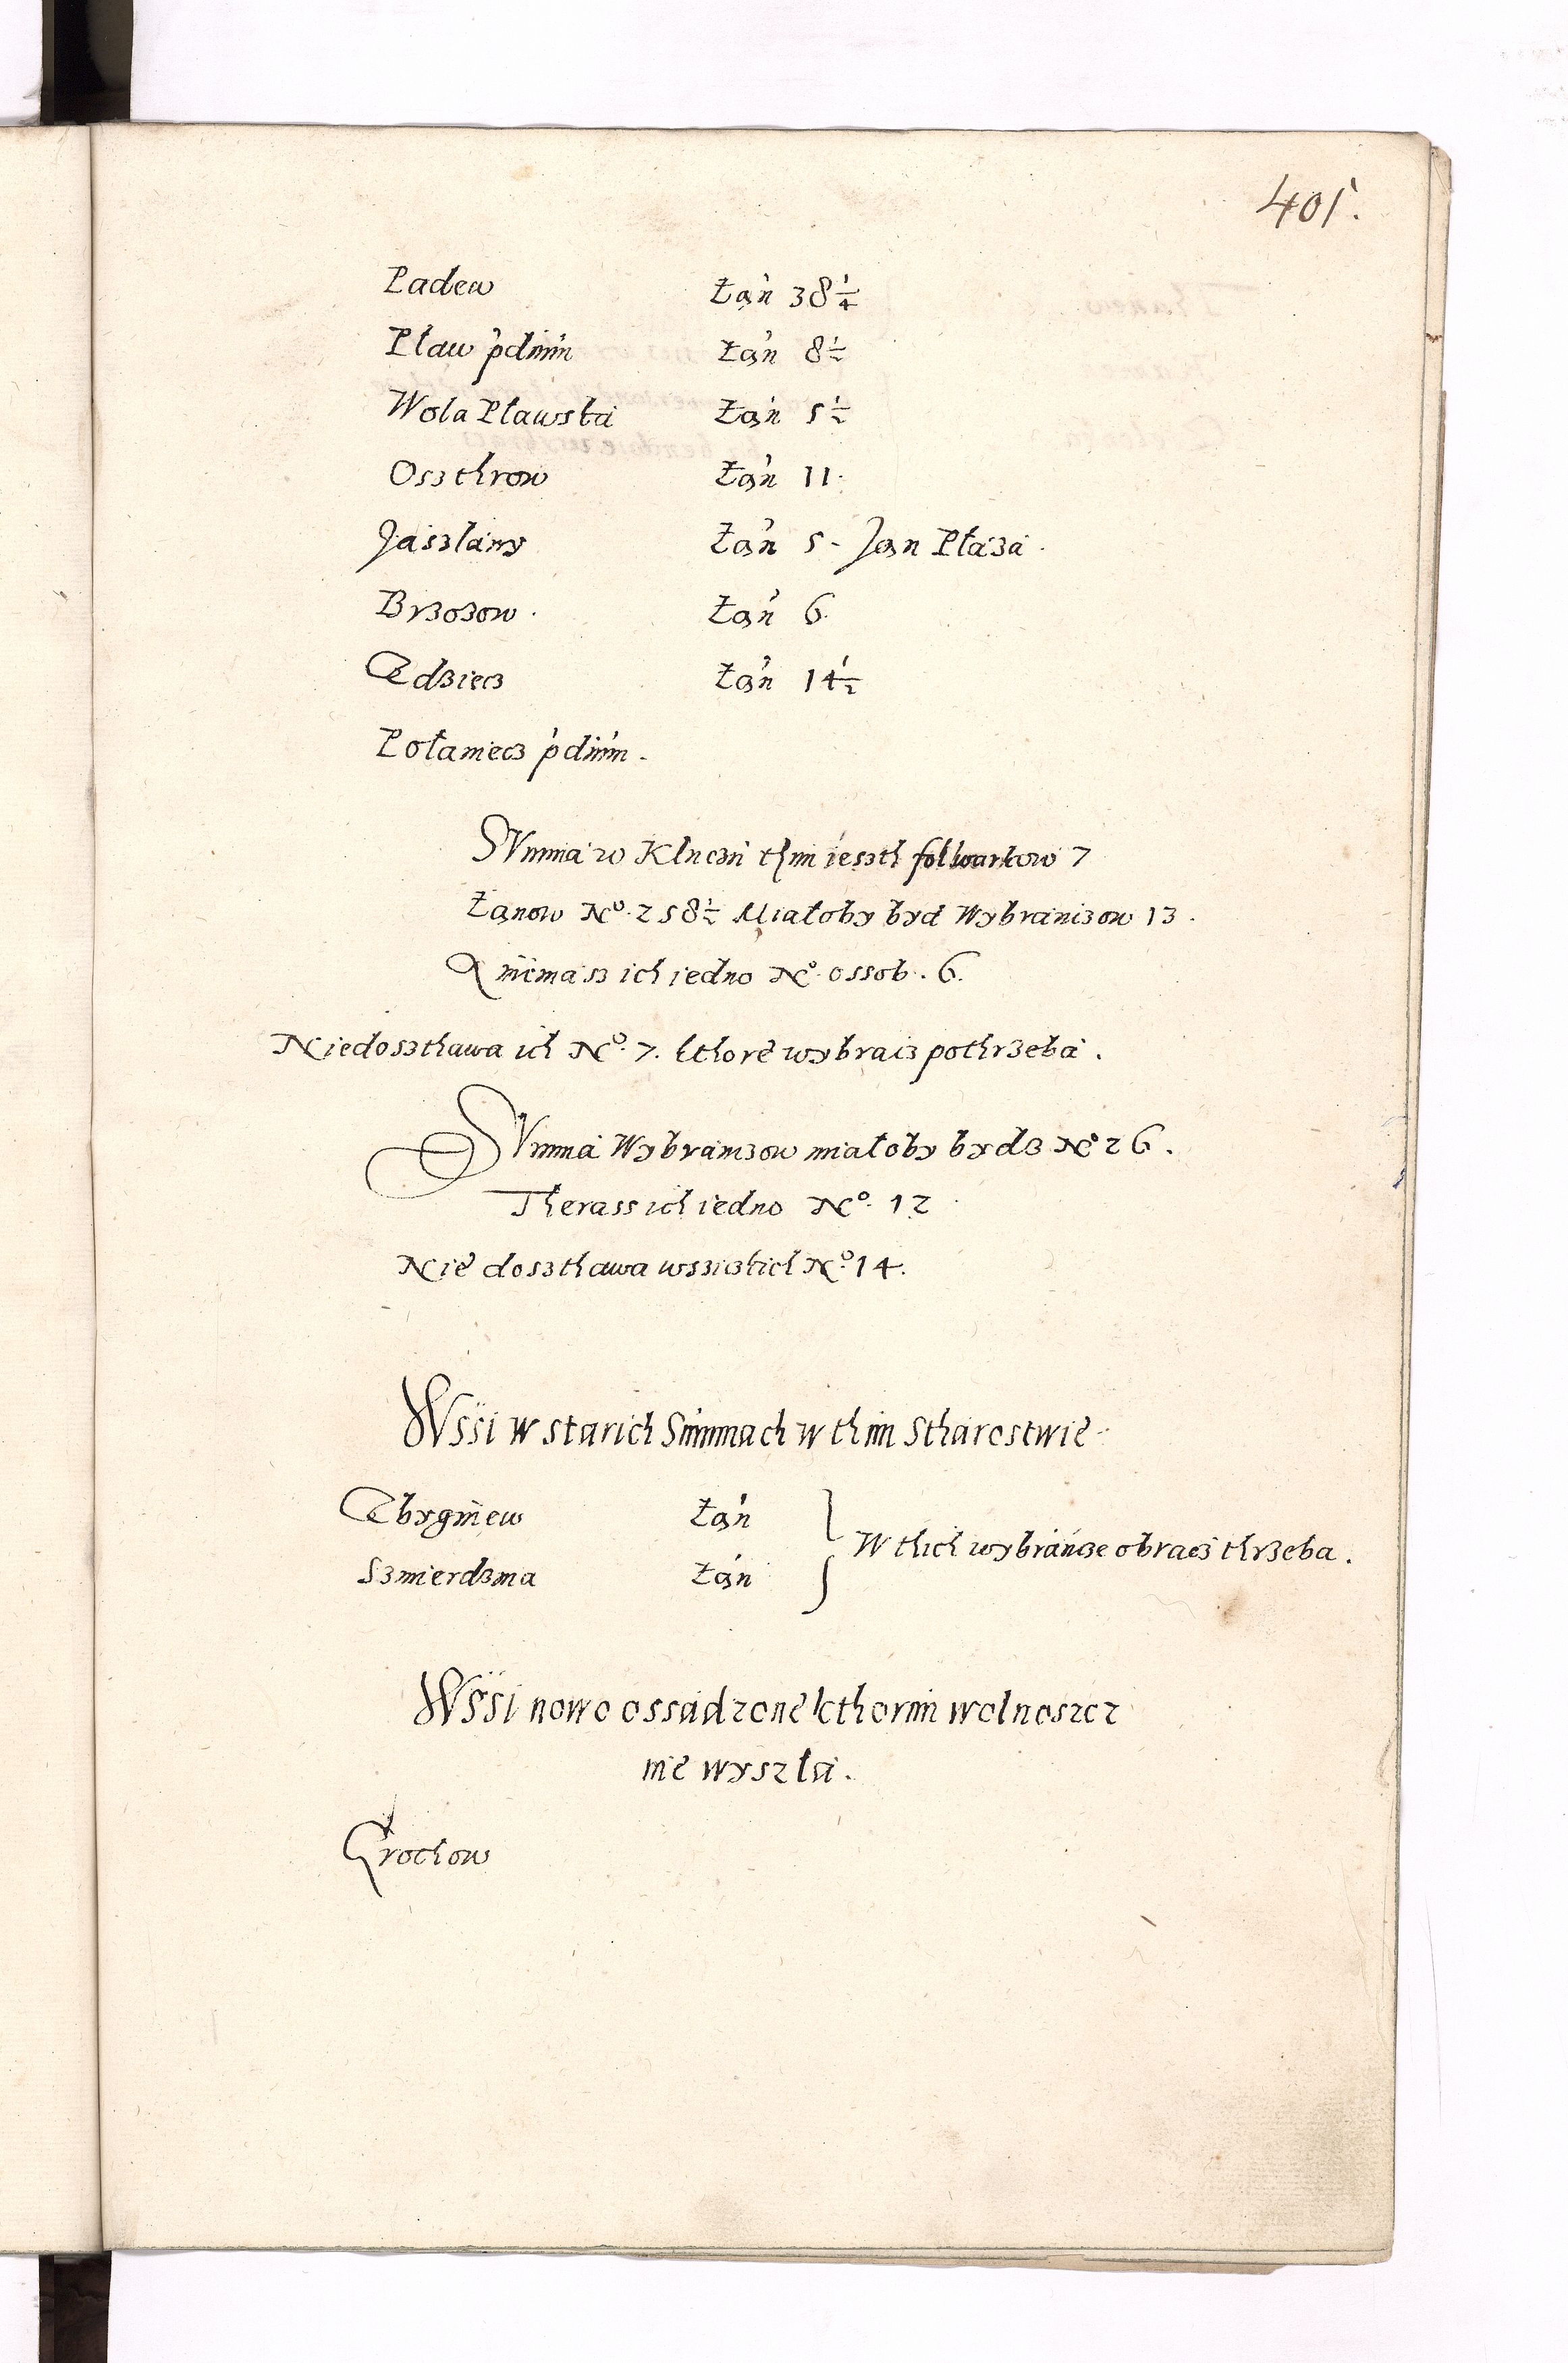 405.
Padew Łan 38 1/4
Pław pdium Łan 8 1/2
Wola Pławska Łan 5 1/2
Oszthrow Łan 11.
Jaszlany Łan 5 - Jan Płaza.
Brzozow. Łan 6.
Zdziecz Łan 14 1/2
Połaniecz pdium.
Summa w Kluczu thim ieszth folwarkow 7
Łanow No. 258 1/2 Miałoby byd Wybranczow 13.
A niemasz ich iedno No. ossob. 6.
Niedoszthawa ich No. 7. kthore wybracz pothrzeba.
Summa Wybranczow miałoby bydz No 26.
Therass ich iedno No. 12
Nie doszthawa wszickich No. 14.
Wssi w starich Summach w thim Stharostwie
Zbygniew Łan
Szmierdzina Łan
W thich wybrancze obracz thrzeba.
Wssi nowo ossadzone kthorim wolnoszcz
nie wyszła.
Grochow